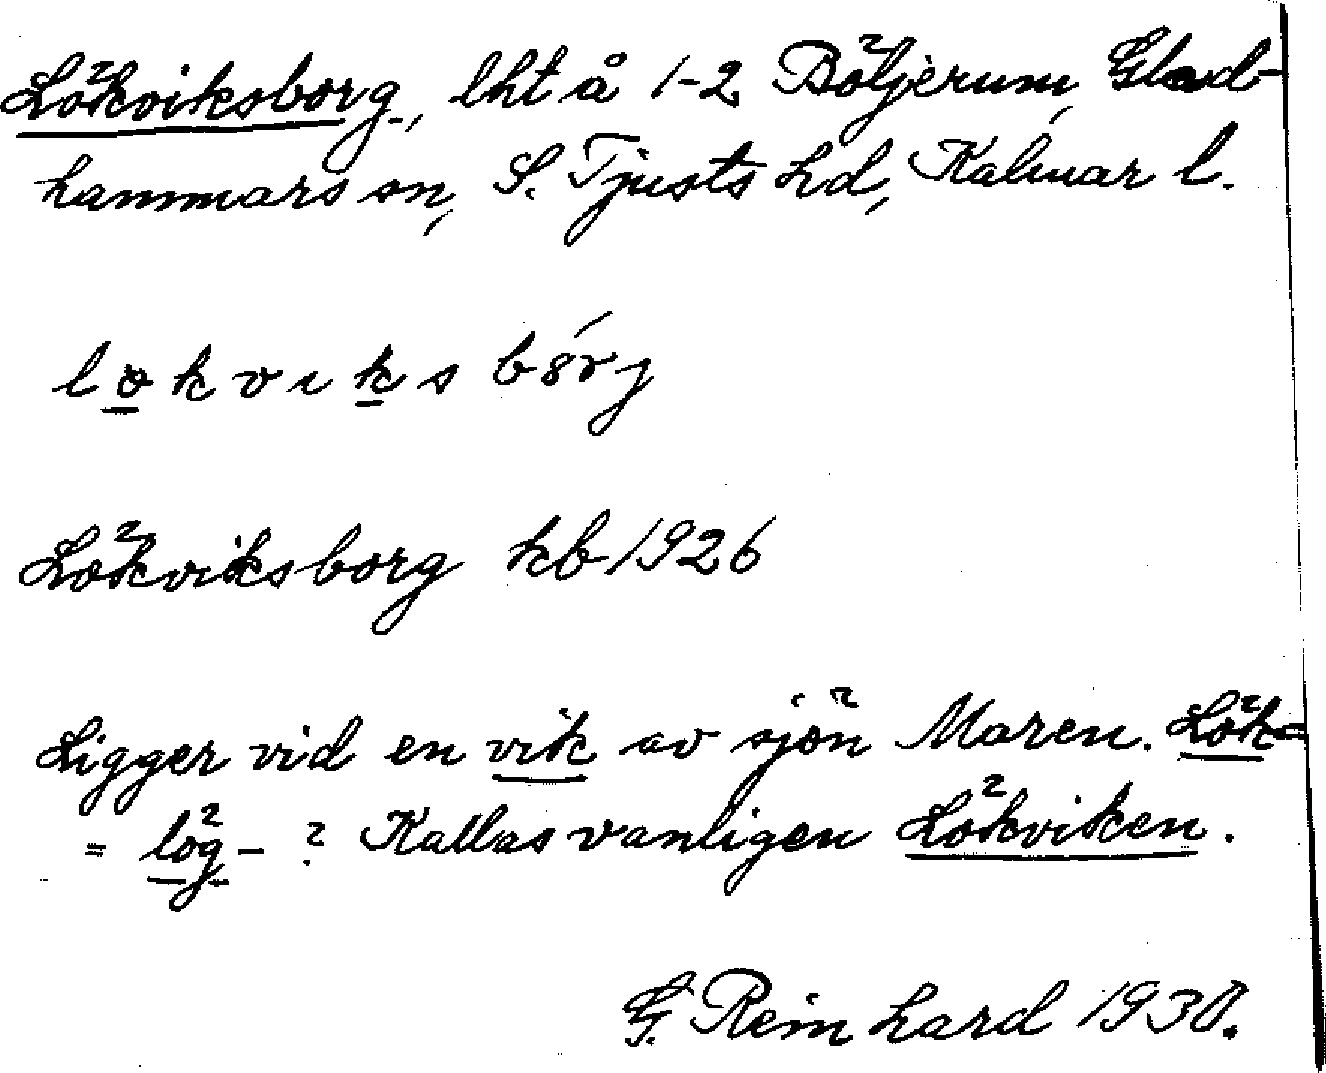 Lökviksborg, lht å 1-2 Böljerum, Glad-
hammars sn, S. Tjusts hd, Kalmar l.
lökviksbórj
Lökviksborg kb 1926
Ligger vid en vik av sjön Maren. Lök-
= lög- ? Kallas vanligen Lökviken.
G. Reinhard 1930.